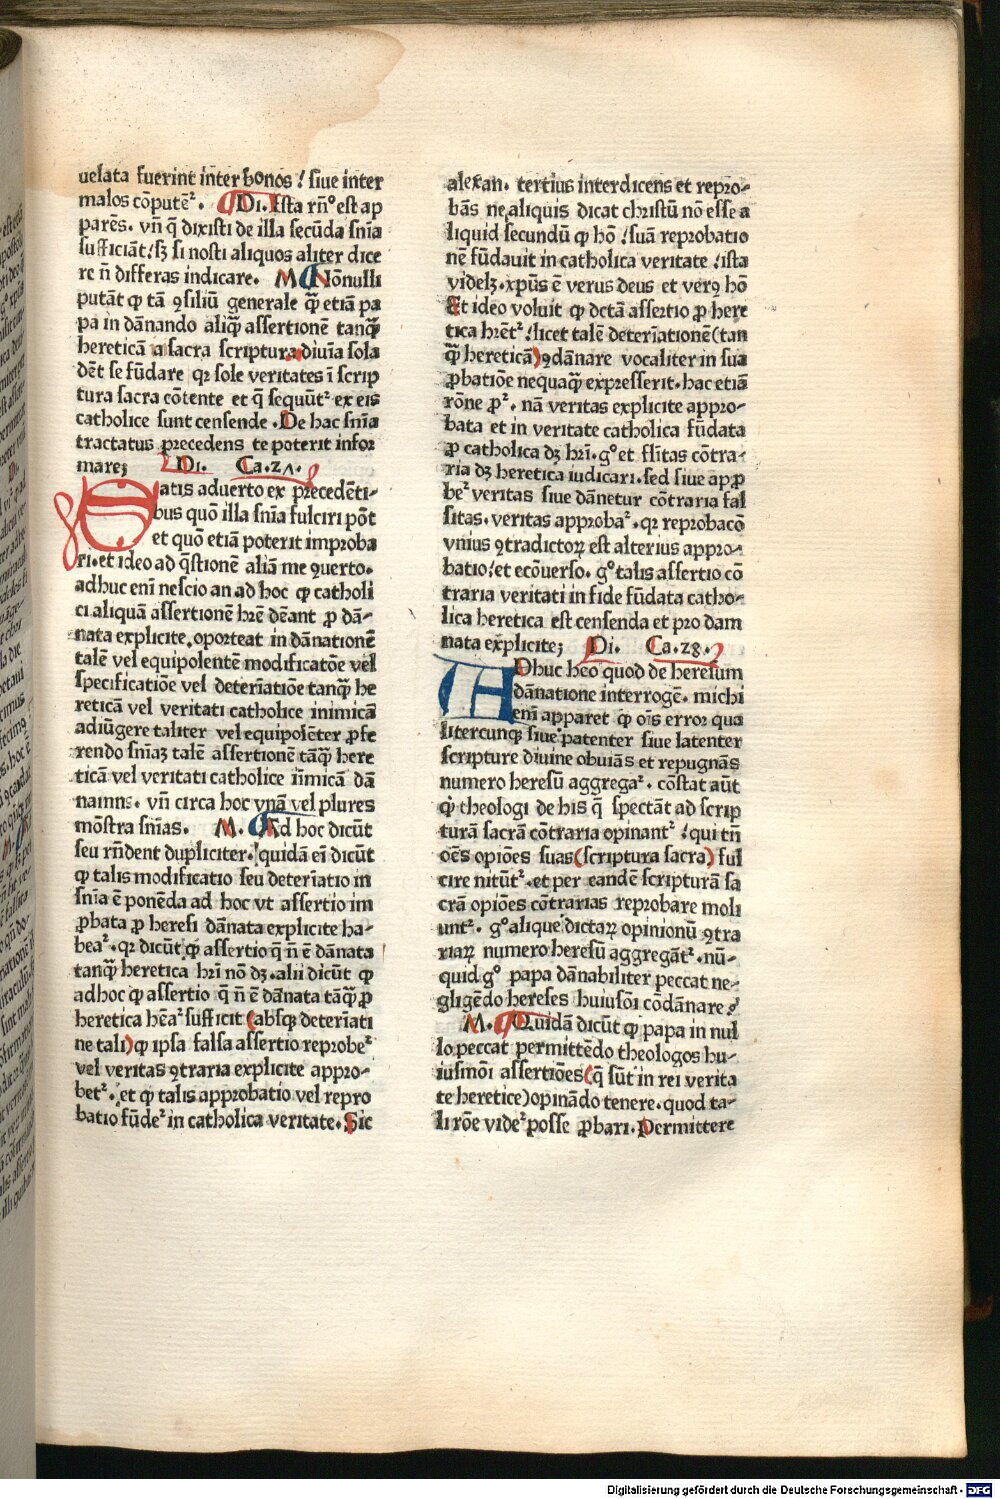 uelata fuerint int̄er bonos ! siue inter
malos cōputē². Di. Ista rn̄º est ap
parēs. vn̄ q̄ dixisti de illa secūda sn̄ia
sufficiāt/sꝫ si nosti aliquos aliter dice
re n̄ differas indicare. M Nōnulli
putāt ꝙ tā ꝯsiliū generale q̄ꝫ etiā pa
pa in dānando aliq̄ꝫ assertionē tanq̄ꝫ
hereticā a sacra scriptura diuīa sola
dēt se fūdare qꝛ sole veritates ī scrip
tura sacra cōtente et q̄ sequūt² ex eis
catholice sunt censende . De hac sn̄ia
tractatus precedens te poterit infor
mare; Di. Ca.zʌ.
Satis aduerto ex p̄recedēti-
bus quō illa sn̄ia fulciri pōt
et quō etiā poterit improba
ri.et ideo ad q̄stionē aliā me ꝯuerto.
adhuc enī nescio an ad hoc ꝙ catholi
ci aliquā assertionē hr̄e dēant ꝓ dā-
nata explicite.oporteat in dānationē
talē vel equipolentē modificatōe vel
specificatiōe vel deter̄iatiōe tanq̄ꝫ he
reticā vel veritati catholice inimicā
adiūgere taliter vel equipolēter ꝓfe
rendo sn̄iaꝫ talē assertionē tāq̄ꝫ here
ticā vel veritati catholice īn̄micā dā
namꝰ. vn̄ circa hoc vnā vel plures
mōstra sn̄ias. M. Ad hoc dicūt
seu rn̄dent dupliciter.quidā eī dicūt
ꝙ talis modificatio seu deter̄iatio in
sn̄ia ē ponēda ad hoc vt assertio im
ꝓbata ꝓ heresi dānata explicite ha-
bea².qꝛ dicūt ꝙ assertio q̄ n̄ ē dānata
tanq̄ꝫ heretica hr̄i nō dꝫ.alii dicūt ꝙ
ad hoc ꝙ assertio q̄ n̄ ē dānata tāq̄ꝫ ꝓ
heretica hēa² sufficit (absqꝫ deter̄iati
ne tali) ꝙ ipsa falsa assertio reprobe²
vel veritas ꝯtraria explicite appro-
bet².et ꝙ talis approbatio vel repro
batio fūde² in catholica veritate. Sic
alexan. tertius interdicens et repro-
bās ne aliquis dicat christū nō esse a
liquid secundū ꝙ hō !suā reprobatio
nē fūdauit in catholica veritate !ista
videlꝫ.xpūs ē verus deus et verꝰ hō
Et ideo voluit ꝙ dctā assertio ꝓ here
tica hr̄et² !licet talē deter̄iationē (tan
q̄ꝫ hereticā) ꝯdānare vocaliter in sua
ꝓbatiōe nequaq̄ꝫ expresserit.hac etiā
rōne ꝓ². nā veritas explicite appro-
bata et in veritate catholica fūdata
ꝓ catholica dꝫ hr̄i.gº et fl̄itas cōtra-
ria dꝫ heretica iudicari.sed siue apꝓ
be² veritas siue dānetur cōtraria fal
sitas.veritas approba².qꝛ reprobacō
vnius ꝯtradictoꝝ est alterius appro-
batio!et ecōuerso. gº talis assertio cō
traria veritati in fide fūdata catho-
lica heretica est censenda et pro dam
nata explicite; Di. Ca.z8.
ADhuc heo quod de heresum
dānatione interrogē. michi
enī apparet ꝙ oīs error qua
litercunqꝫ siue patenter siue latenter
scripture diuine obuiās et repugnās
numero heresū aggrega². cōstat aūt
ꝙ theologi de his q̄ spectāt ad scrip
turā sacrā cōtraria opinant² !qui tn̄
oēs opiōes suas (scriptura sacra) ful
cire nitūt².et per eandē scripturā sa
crā opiōes cōtrarias reprobare moli
unt². gº alique dictaꝝ opinionū ꝯtra
riaꝝ numero heresū aggregāt².nū-
quid gº papa dānabiliter peccat ne-
gligēdo hereses huiusōi cōdānare ?
M. Quidā dicūt ꝙ papa in nul
lo peccat permittēdo theologos hu-
iusmōi assertiōes (q̄ sūt in rei verita
te heretice) opinādo tenere.quod ta-
li rōe vide² posse ꝓbari. Permittere
Digitalisierung gefördert durch die Deutsche Forschungsgemeinschaft - DFG